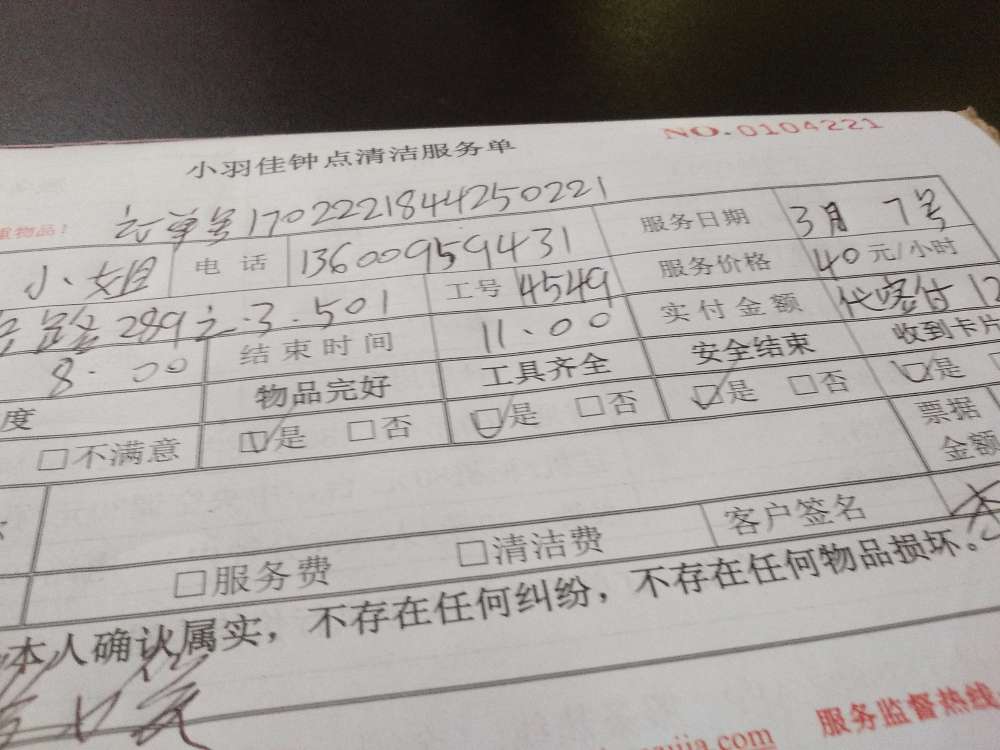 NO.0104221
小羽佳钟点清洁服务单
重物品！ 单号1702221844250221
小姐 电话 13600959431 服务日期 3月7号
289 3.501 工号 4549 服务价格 40元/小时
8:00 结束时间 11:00 实付金额 代客付12
度 物品完好 工具齐全 安全结束 收到卡片
□不满意 ☑是 □否 ☑是 □否 ☑是 □否 ☑是
票据
金额
□服务费 □清洁费 客户签名
本人确认属实，不存在任何纠纷，不存在任何物品损坏。
服务监督热线
jia.com